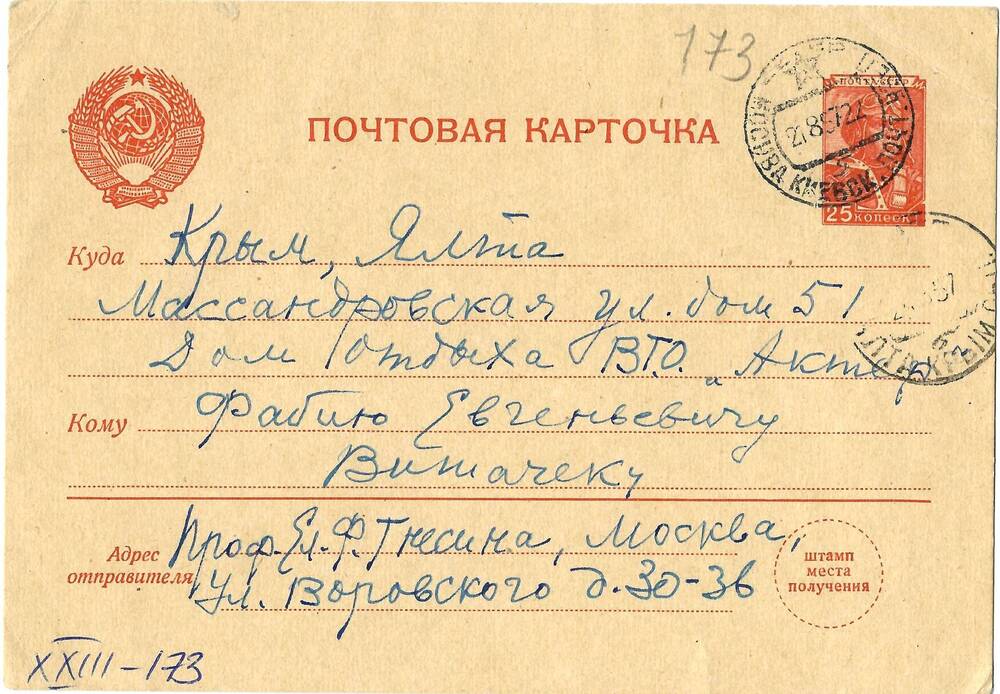 173
ПОЧТОВАЯ КАРТОЧКА
ПОЧТА СССР
25 КОПЕЕК
МОСКВА КИЕВСК.
ЯЛТА КРЫМ
Куда Крым, Ялта
Массандровская ул. дом 51
Дом отдыха ВТО „Актер
Кому Фабию Евгеньевичу
Витачеку
Адрес отправителя Проф. Ел. Ф. Гнесина, Москва,
Ул. Воровского д. 30-36
штамп
места
получения
XXIII-173